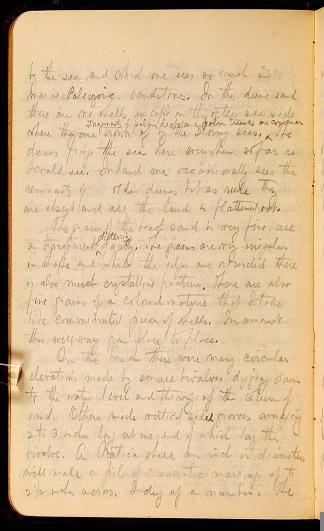 by the sea and which one sees so much in
marine Paleozoic sandstones. In the dune sand
there are no shells except on the sea side
where they are thrown up by the strong seas. The
dunes fringe the sea here everywhere so far as
I could see. Inland one occasionally sees the
remnants of older dunes but as a rule they
are absent and all the land is flattened out.
The grains of the beach sand is very fine, are
a transparent glistening quartz. The grains are very irregular
in shape and while the edges are rounded there
is also much crystalline fracture. There are also
fine grains of a colored nature that I take
to be comminuted pieces of shells. In amount
this will vary from place to place.
On the beach there were many circular
elevations made by small bivalves digging down
to the water level and throwing off the column of
sand. Others made vertical sided grooves averaging
2 to 3 inches long at one end of which lay the
bivalve. A Natica shell an inch in diameter
will make a pile of crescentic markings up to
2 1/2 inches across. I dug up a number. The